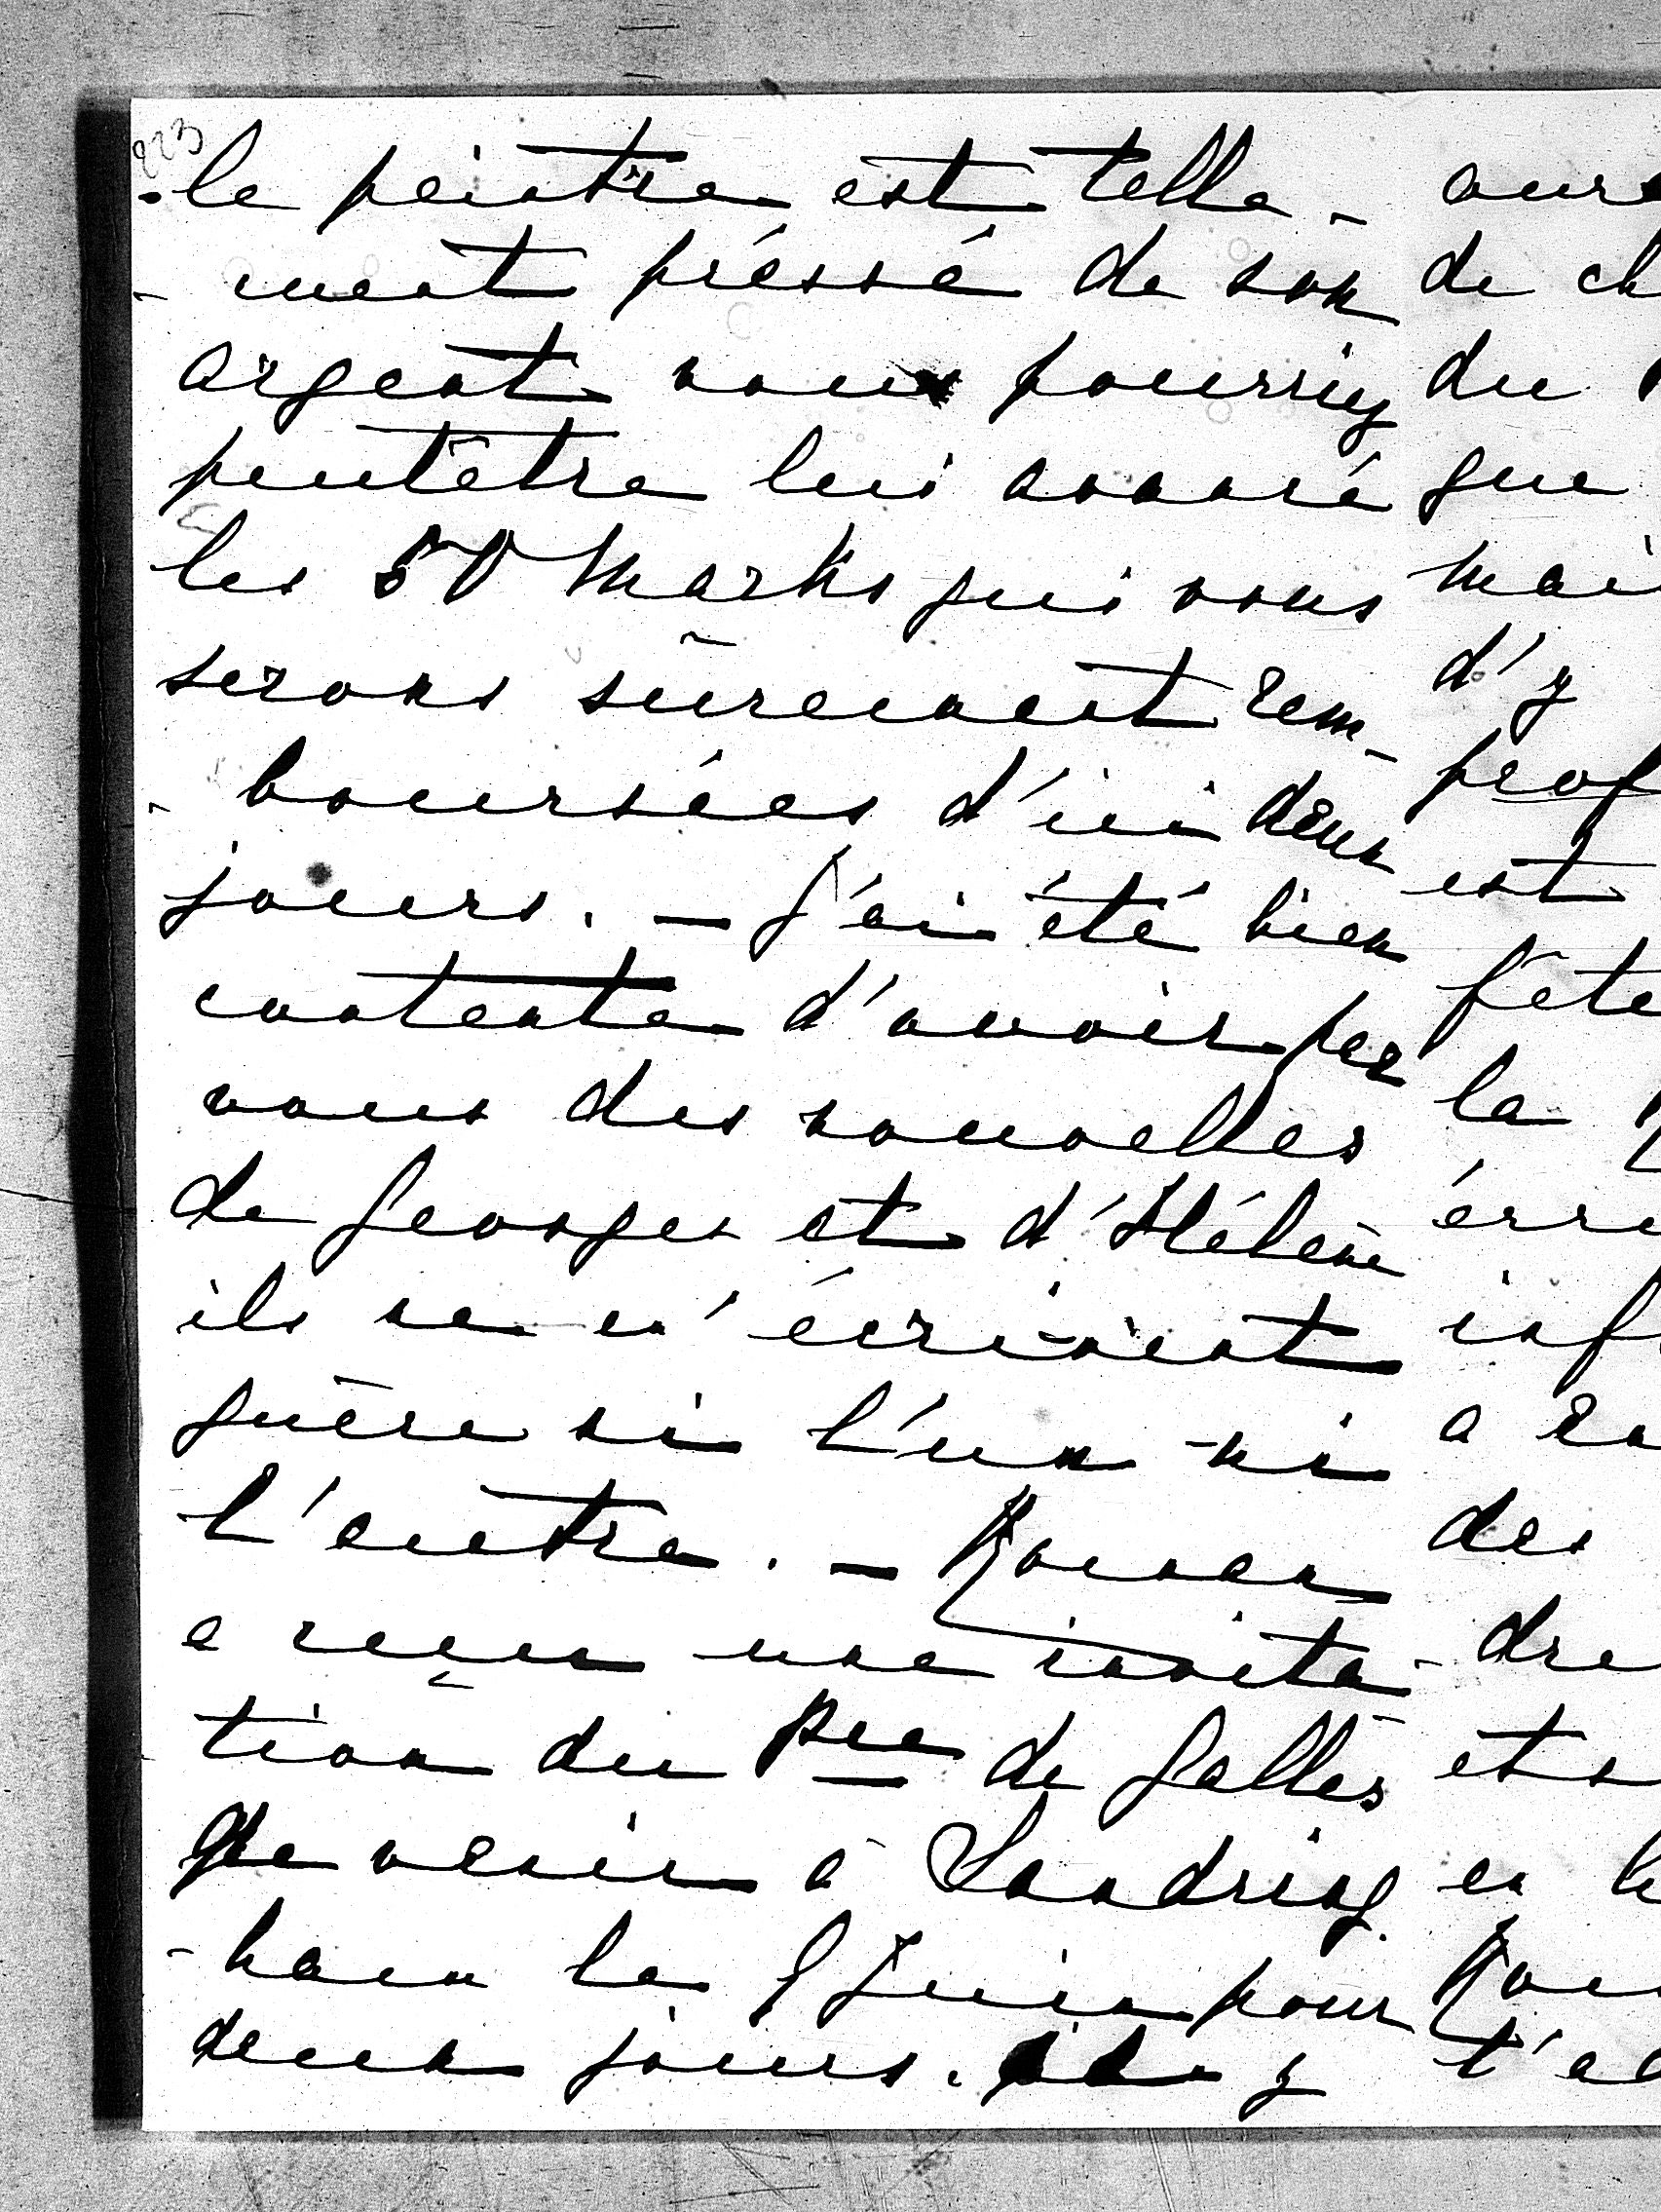 223
le peintre est telle-
-ment préssé de son
argent vous pourriez
peutêtre lui avancé
les 50 Marks qui vous
serons sûrement rem-
-boursées d'ici deux
jours. — J'ai été bien
contente d'avoir par
vous des nouvelles
de Georges et d'Hélène
ils ne m'écrivent
guère ni l'un ni
l'autre. —
a reçu une invita-
tion du Pce de Galles
de venir à Sandring-
-ham le 9 Juin pour
deux jours. il y
de ch
du
que
mai
d'y
prof
est
fête
la
inf
des
et
en
t'a